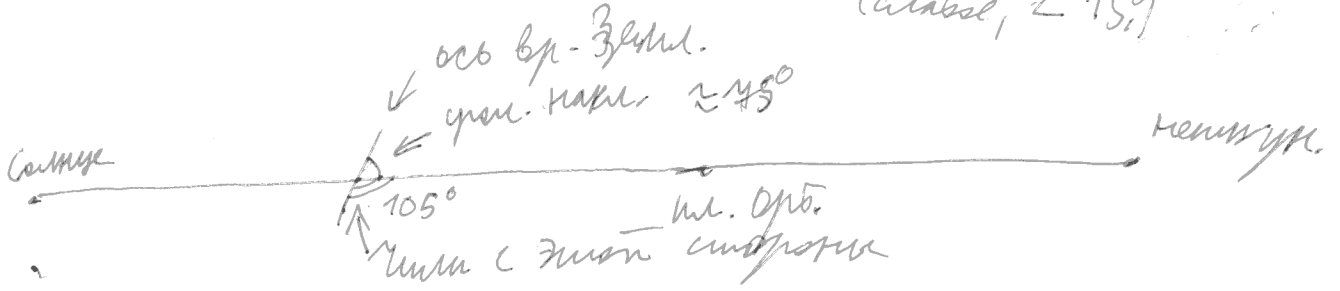 (слабее, ∠ 15,)
ось вр. Земл.
угол. накл. ≈ 75°
Солнце
нептун.
105°
пл. орб.
Чили с этой стороны